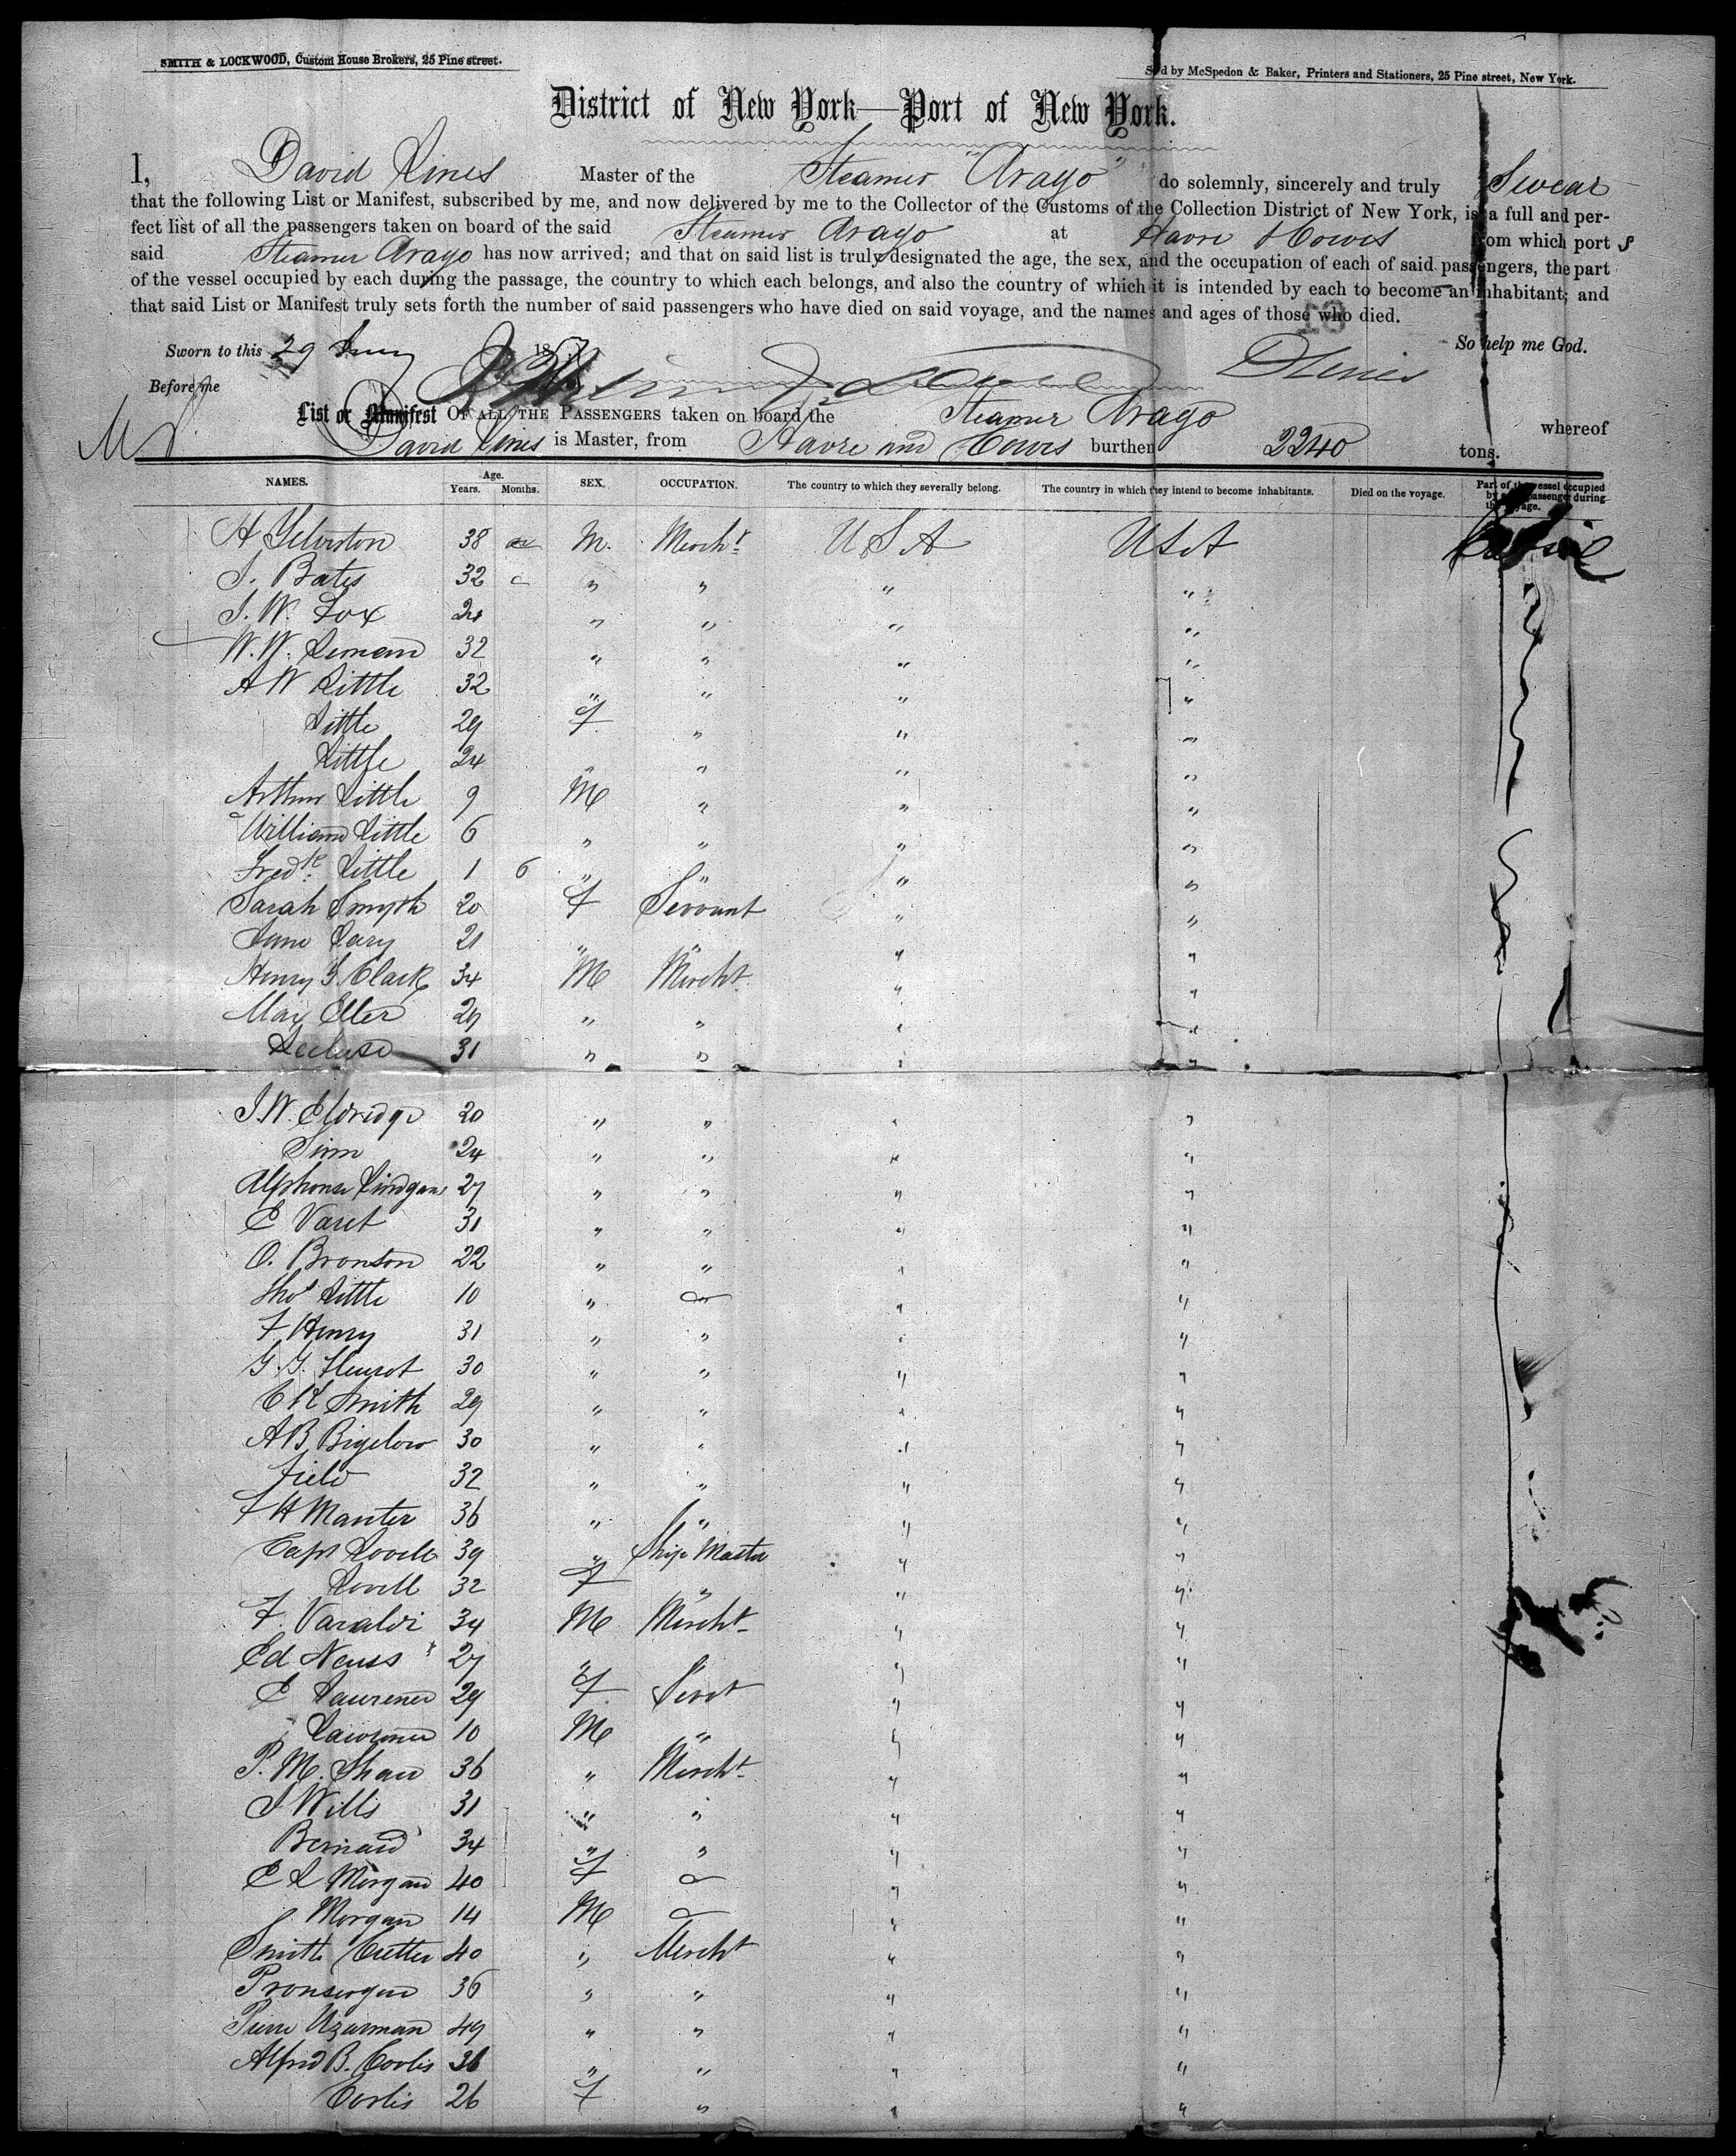 SMITH & LOCKWOOD, Custom House Brokers, 25 Pine street.
Sold by McSpedon & Baker, Printers and Stationers, 25 Pine street, New York.
District of New York—Port of New York.
I, David Lines Master of the Steamer "Arago" do solemnly, sincerely and truly Swear
that the following List or Manifest, subscribed by me, and now delivered by me to the Collector of the Customs of the Collection District of New York, is a full and per-
fect list of all the passengers taken on board of the said Steamer Arago at Havre & Cowes from which port s
said Steamer Arago has now arrived; and that on said list is truly designated the age, the sex, and the occupation of each of said passengers, the part
of the vessel occupied by each during the passage, the country to which each belongs, and also the country of which it is intended by each to become an inhabitant; and
that said List or Manifest truly sets forth the number of said passengers who have died on said voyage, and the names and ages of those who died.
Sworn to this 29 185 So help me God.
Before me D Lines
List or Manifest OF ALL THE PASSENGERS taken on board the Steamer Arago whereof
David Lines is Master, from Havre and Cowes burthen 2240 tons.
NAMES. Age. Years. Months. SEX. OCCUPATION. The country to which they severally belong. The country in which they intend to become inhabitants. Died on the voyage. Part of the vessel occupied by each passenger during the voyage.
A Yelverton 38 M. Mercht U S A U S A Cabin
J. Bates 32 " " " "
J. W. Fox 24 " " " "
W. W. Leman 32 " " " "
A W Little 32 " " " "
Little 29 F " " "
Little 24 " " " "
Arthur Little 9 M " " "
William Little 6 " " " "
Fredk Little 1 6 " " " "
Sarah Smyth 20 F Servant " "
Jane Lary 21 " " " "
Henry G. Clark 34 M Mercht " "
Max Eller 29 " " " "
Lecluse 31 " " " "
J. W. Eldridge 20 " " " "
Sinn 24 " " " "
Alphonse 27 " " " "
E Varet 31 " " " "
O. Bronson 22 " " " "
Thos Little 10 " " "
F Henry 31 " " " "
G. G. Fleurot 30 " " " "
C H Smith 29 " " " "
A B Bigelow 30 " " " "
Field 32 " " " "
F H Manter 36 " " " "
Capt Lovell 39 " Ship Master " "
Lovell 32 F " " "
F. Varaldi 34 M Mercht " "
Ed Neuss 27 " " " "
E Lawrence 29 F Servt " "
Lawrence 10 M " " "
P. M. Shaw 36 " Mercht " "
J Wills 31 " " " "
Bernard 34 " " " "
E L Morgan 40 F " "
Morgan 14 M " "
Smith Cutter 40 " Mercht " "
36 " " " "
Pierre 49 " " " "
Alfred B. Corlis 36 " " " "
Corlis 26 F " " "